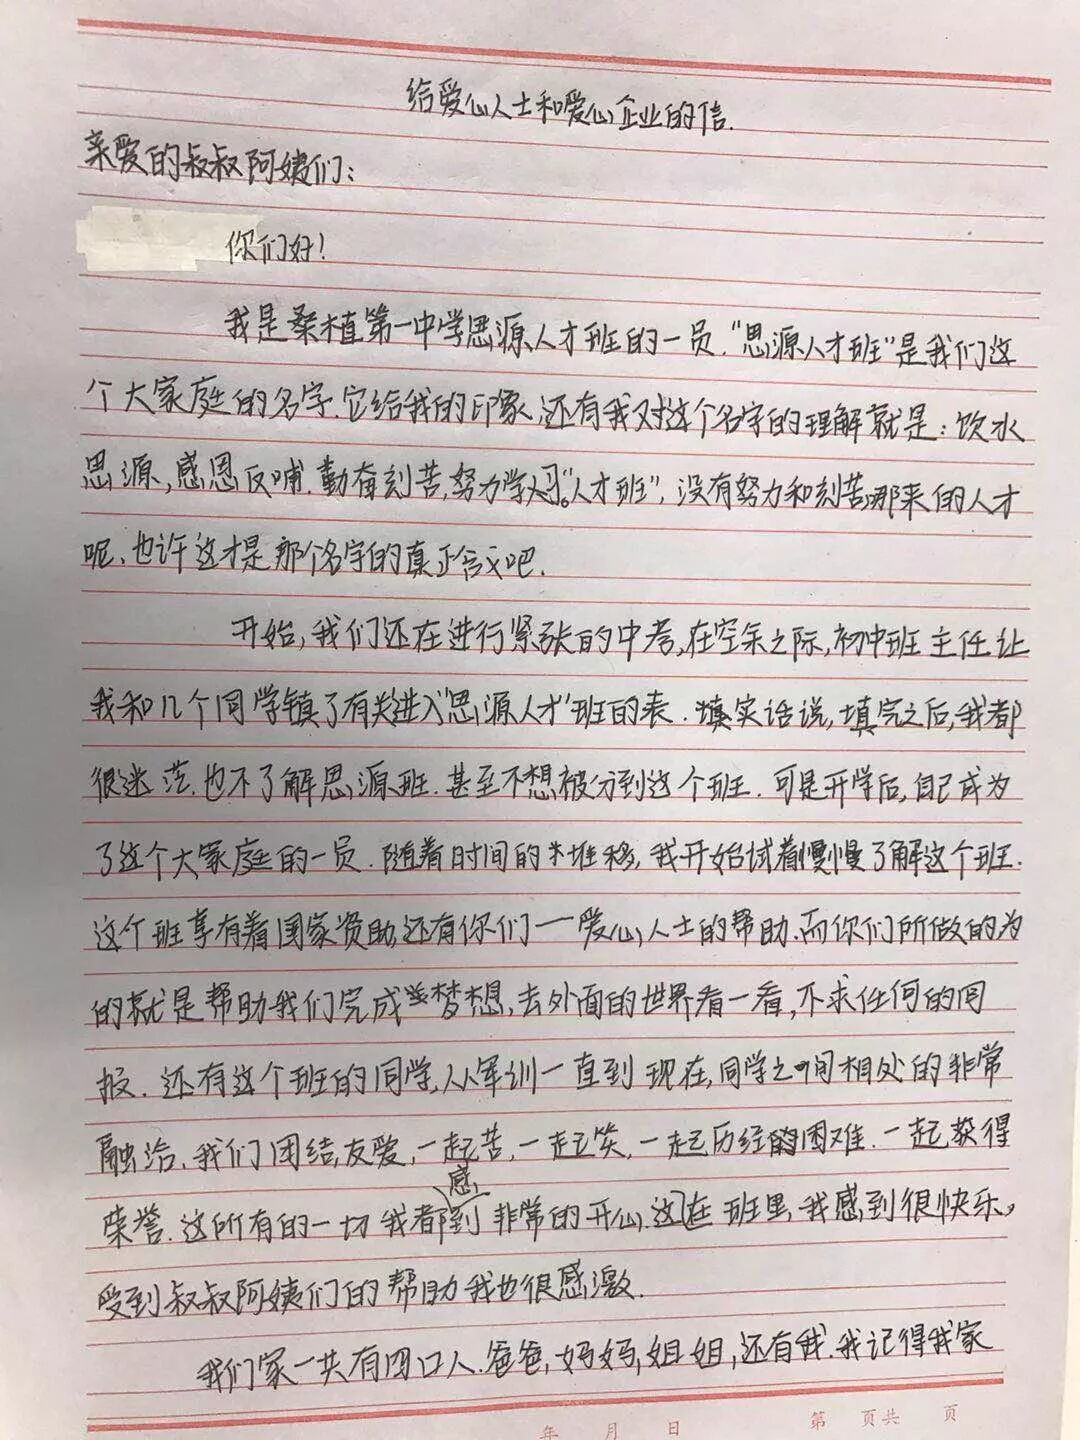 给爱心人士和爱心企业的信.
亲爱的叔叔阿姨们:
你们好!
我是桑植第一中学思源人才班的一员."思源人才班"是我们这
个大家庭的名字.它给我的印象,还有我对这个名字的理解就是:饮水
思源,感恩反哺.勤奋刻苦,努力学习。"人才班",没有努力和刻苦哪来的人才
呢、也许这才是那个名字的真正含义吧.
开始,我们还在进行紧张的中考,在空余之际,初中班主任让
我和几个同学填了有关进入"思源人才"班的表.填实话说,填完之后,我都
很迷茫.也不了解思源班.甚至不想被分到这个班.可是开学后,自己成为
了这个大家庭的一员.随着时间的推移,我开始试着慢慢了解这个班.
这个班享有着国家资助,还有你们一爱心人士的帮助.而你们所做的为
的就是帮助我们完成梦想,去外面的世界看一看,不求任何的回
报.还有这个班的同学,从军训一直到现在,同学之间相处的非常
融洽,我们团结友爱,一起苦,一起笑,一起历经的困难.一起获得
荣誉.这所有的一切我都感到非常的开心.这在班里,我感到很快乐,
受到叔叔阿姨们的帮助我也很感激.
我们家一共有四口人.爸爸,妈妈,姐姐,还有我.我记得我家
年 月 日 第 页共 页